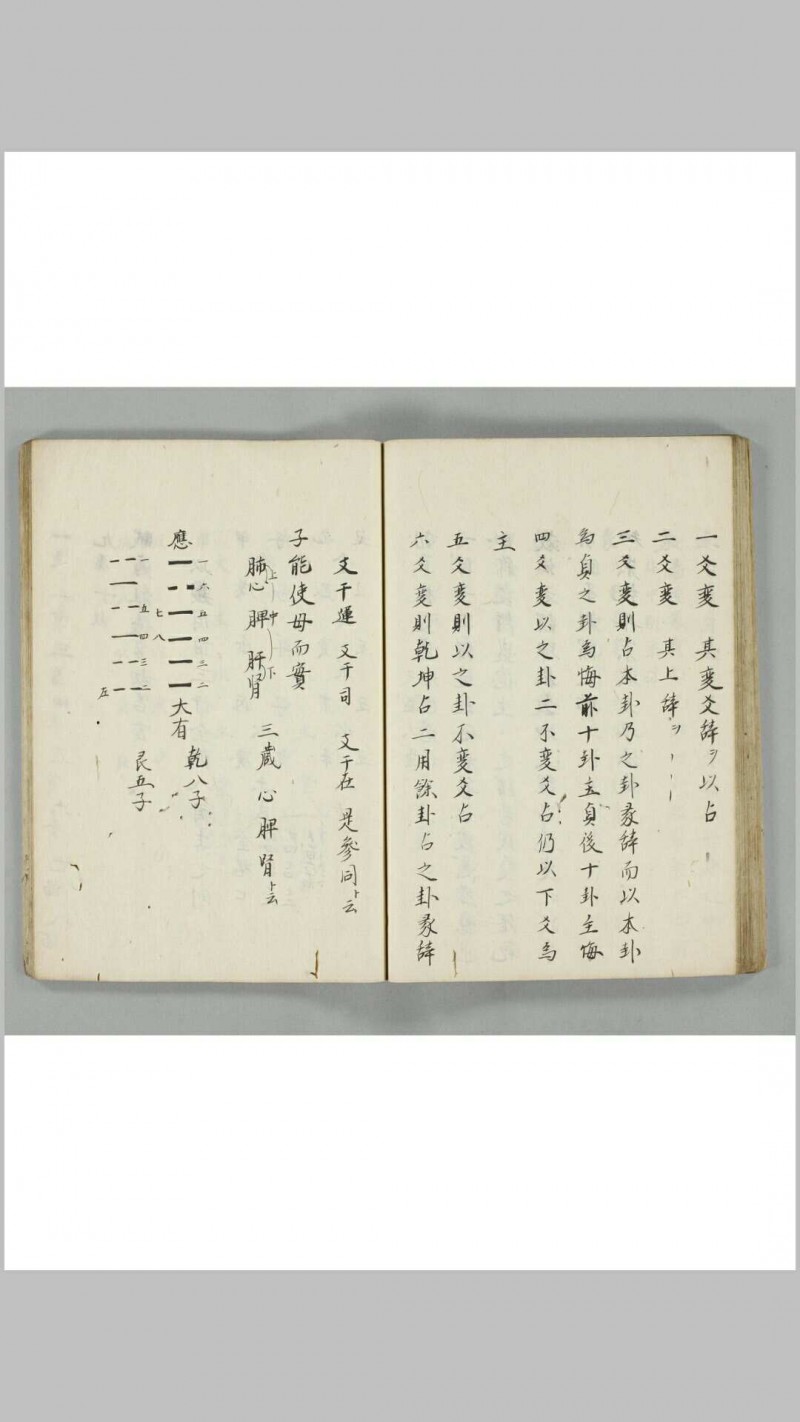 一爻変 其変爻辞ヲ以占
二爻変 其上辞ヲ
三爻変則占本卦乃之卦彖辞而以本卦
為貞之卦為悔前十卦主貞後十卦主悔
四爻変以之卦二不変爻占仍以下爻為
主
五爻変則以之卦不変爻占
六爻変則乾坤占二用餘卦占之卦彖辞
支干運 支干司 支干在 是参同ト云
子能使母而實
肺心 脾 肝腎 三蔵 心 脾 腎ト云
上 中 下
應
一 六 五 四 三 二
大有
乾八子
七 八
一 五 四 三 二
艮五子